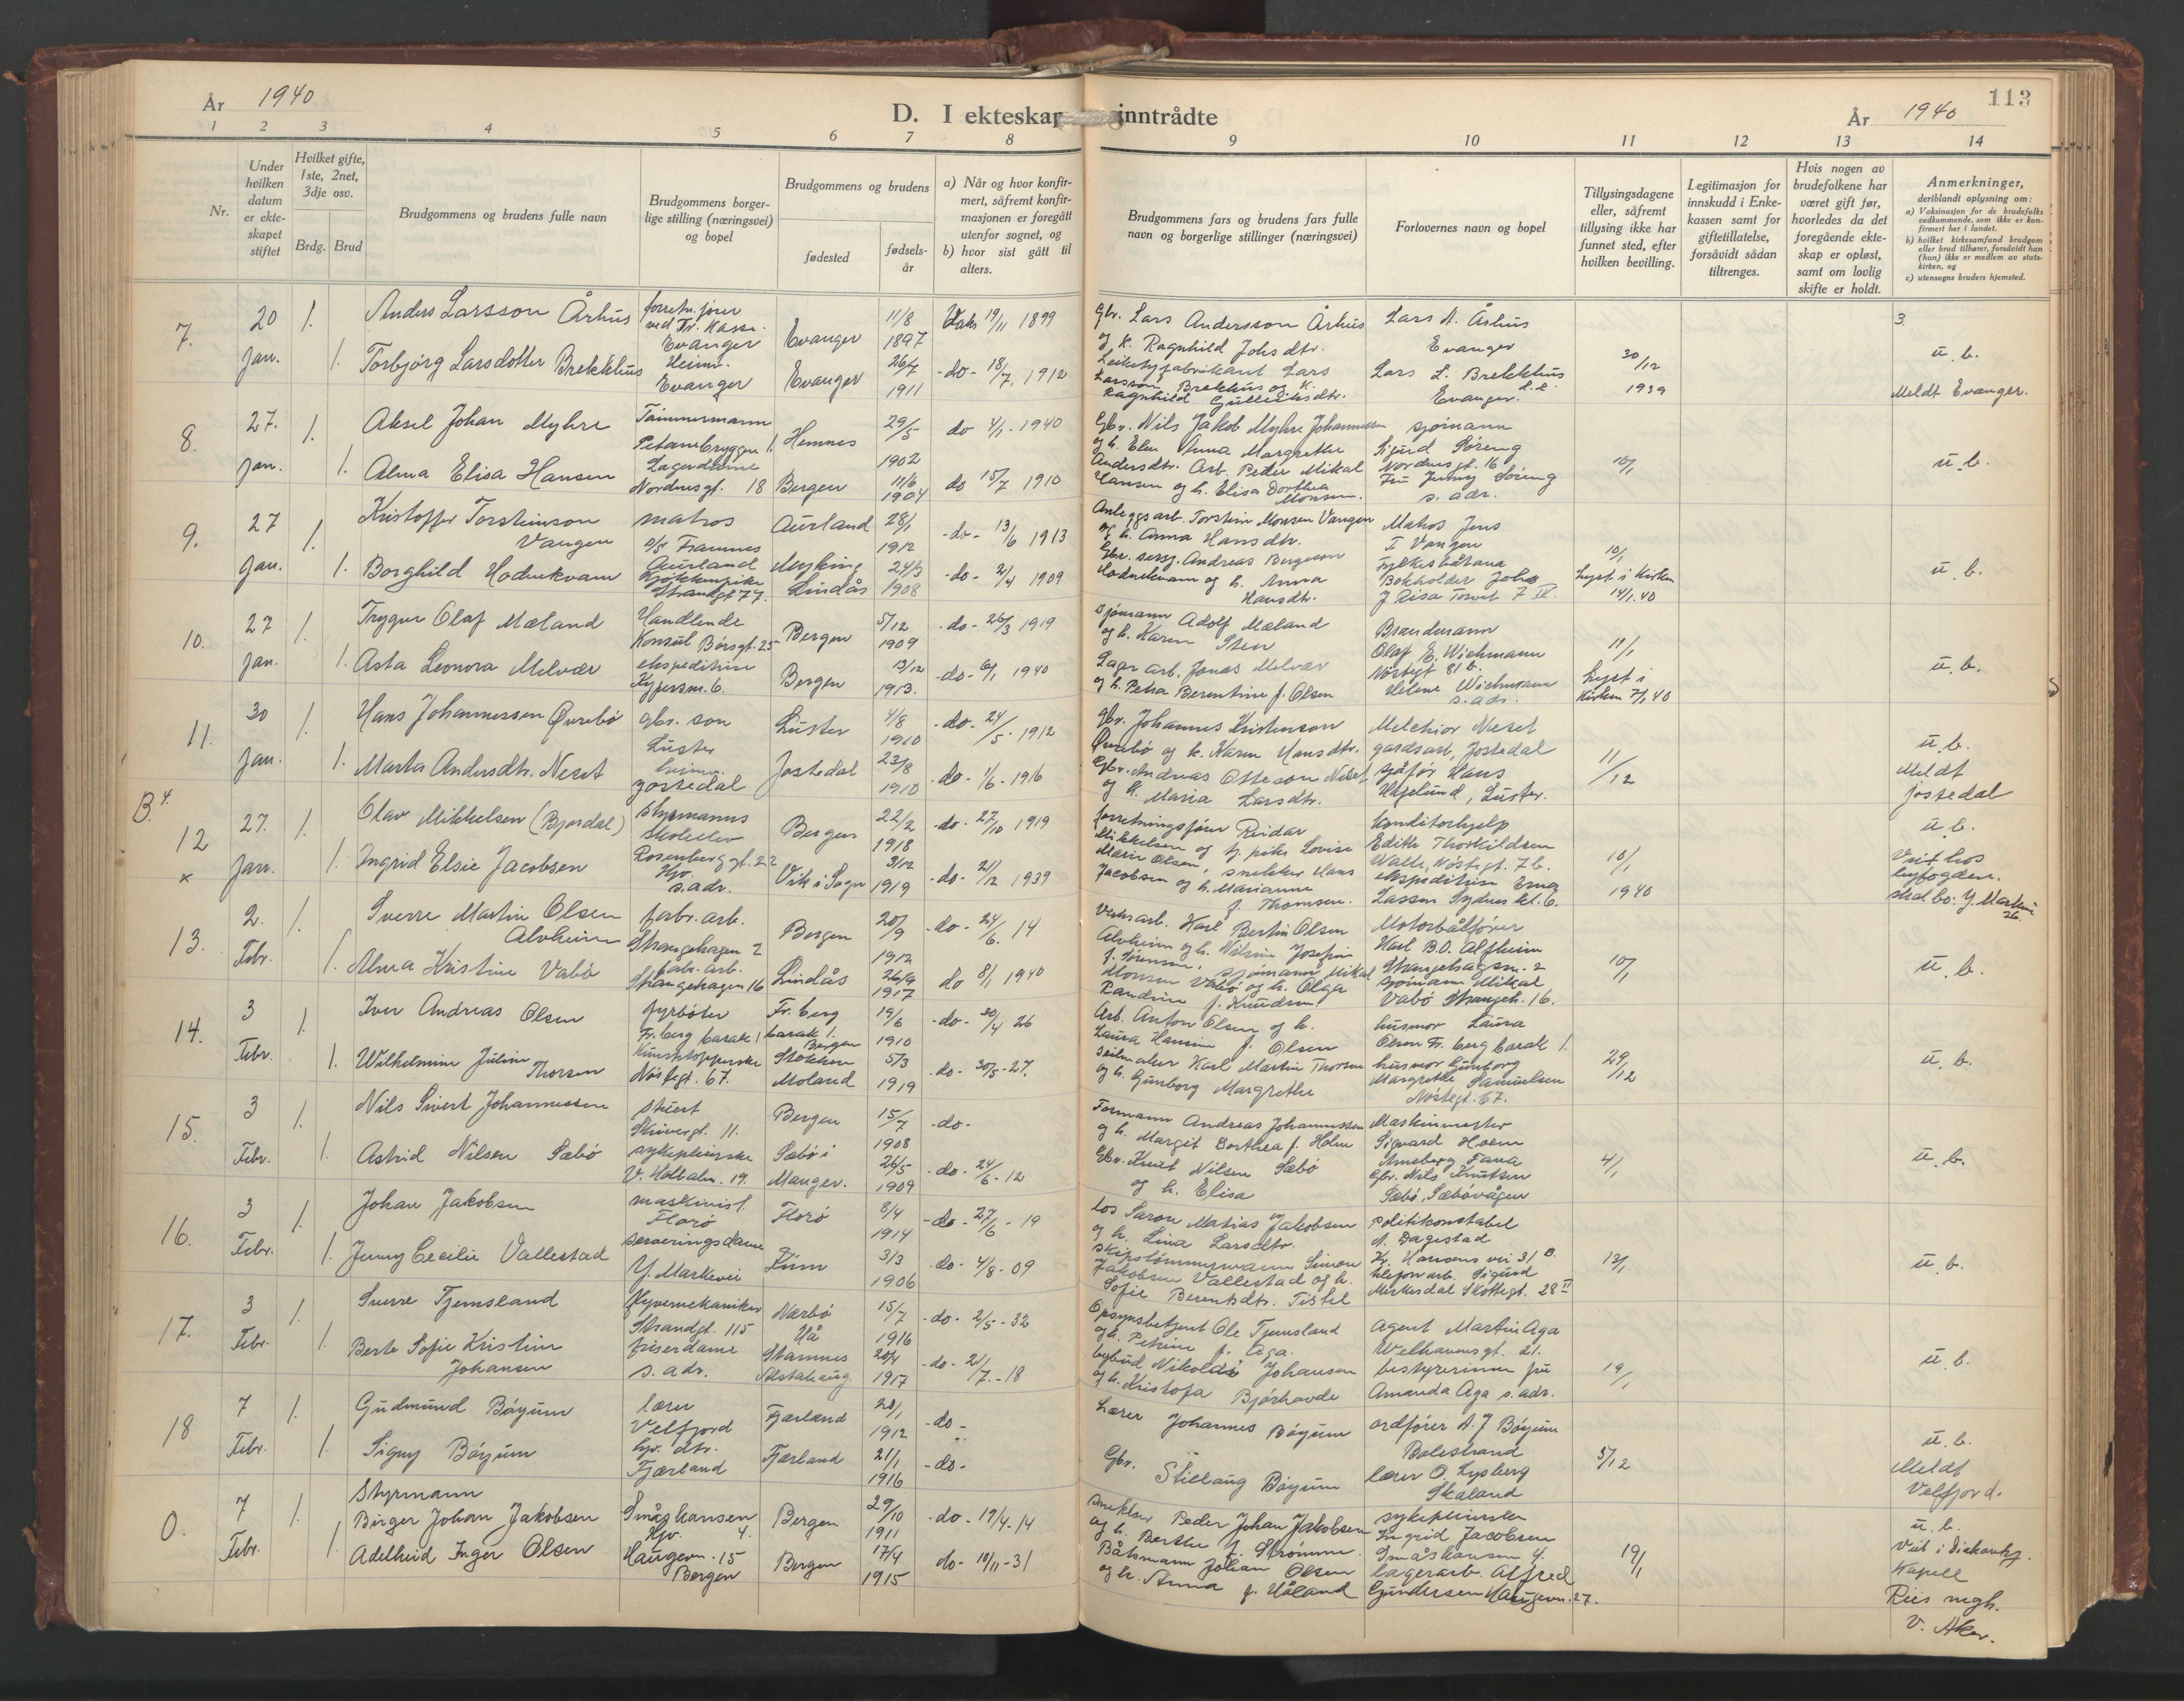 År 1940
D. I ekteskap inntrådte
År 1940
113
1 2 3 4 5 6 7 8 9 10 11 12 13 14
Nr.
Under hvilken datum er ekteskapet stiftet
Hvilket gifte, 1ste, 2net, 3dje osv.
Brdg. Brud
Brudgommens og brudens fulle navn
Brudgommens borgerlige stilling (næringsvei) og bopel
Brudgommens og brudens
fødested
fødselsår
a) Når og hvor konfirmert, såfremt konfirmasjonen er foregått utenfor sognet, og
b) hvor sist gått til alters.
Brudgommens fars og brudens fars fulle navn og borgerlige stillinger (næringsvei)
Forlovernes navn og bopel
Tillysingsdagene eller, såfremt tillysing ikke har funnet sted, efter hvilken bevilling.
Legitimasjon for innskudd i Enkekassen samt for giftetillatelse, forsåvidt sådan tiltrenges.
Hvis nogen av brudefolkene har været gift før, hvorledes da det foregående ekteskap er opløst, samt om lovlig skifte er holdt.
Anmerkninger, deriblandt oplysning om:
a) Vaksinasjon for de brudefolks vedkommende, som ikke er konfirmert her i landet.
b) hvilket kirkesamfund brudgom eller brud tilhører, forsåvidt han (hun) ikke er medlem av statskirken, og
c) utensogns bruders hjemsted.
7. 20 Jan. 1. 1.
Anders Larsson Århus
Torbjørg Larsdotter Brekkhus
Evanger
Heimv.
Evanger
Evanger 11/8 1897
Evanger 26/7 1911
19/11 1899
-do- 18/7 1912
Gbr. Lars Andersson Århus
og k. Ragnhild Johsdtr.
Lars
Larsson Brekkhus og k.
Ragnhild Gulleiksdtr.
Lars A. Århus
Evanger
Lars L. Brekkhus
Evanger.
30/12
1939
3.
u. b.
Meldt Evanger.
8. 27. Jan. 1. 1.
Aksel Johan Myhre
Alma Elisa Hansen
Tømmermann
Lagerdame
Nordnesgt. 18
Hemnes 29/5 1902
Bergen 11/6 1904
do 4/1 1940
do 15/7 1910
Gbr. Nils Jakob Myhre Johannessen
og h. Elen Anna Margrethe
Andersdtr. Arb. Peder Mikal
Hansen og h. Elisa Dorthea
Monsen.
sjømann
Sigurd Søreng
Nordnesgt. 16
Fru Jenny Søreng
s. adr.
10/1
u. b.
9. 27 Jan. 1. 1.
Kristoffer Torsteinson
Vangen
Borghild Hodnekvam
matros
D/S Framnes
Aurland
Kjøkkenpike
Strandgt 77.
Aurland 28/1 1912
Myking
Lindås 24/3 1908
-do- 13/6 1913
-do- 2/4 1909
Anleggsarb. Torstein Monsen Vangen
og h. Anna Hansdtr.
Gbr. Andreas Bergeson
Hodnekvam og h. Anna
Hansdtr.
Matros Jens
I Vangen
Fylkesbåtane
Bokholder Johs
J Risa Torvet 7 IV.
10/1
Lyst i Kirken
14/1.40
u. b.
10. 27 Jan. 1. 1.
Trygve Olaf Mæland
Asta Leonora Melvær
Handlende
Konsul Børsgt. 25
ekspeditrise
Kypersm. 6.
Bergen 5/12 1909
Bergen 13/12 1913.
-do- 26/3 1919
-do- 6/1 1940
Sjømann Adolf Mæland
og h. Karen Sten
Lagerarb. Jonas Melvær
og h. Petra Berentine f. Olsen
Brandmann
Olaf E. Wichmann
Nøstegt 81 b.
Helene Wichmann
s. adr.
11/1
Lyst i
Kirken 7/1 40
u. b.
11. 30 Jan. 1. 1.
Hans Johannessen Øvrebø
Marta Andersdtr. Neset
gbr. son
Luster
heimv.
Jostedal
Luster 4/8 1910
Jostedal 23/8 1910
-do- 24/5 1912
-do- 1/6 1916
Gbr. Johannes Kristenson
Øvrebø og k. Karen Hansdtr.
Gbr. Andreas Otteson Neset
og k. Maria Larsdtr.
Melchior Neset
gardsarb, Jostedal
sjåfør Hans
Hagelund, Luster.
11/12
u. b.
Meldt
Jostedal
B 4.
12 x 27. Jan. 1. 1.
Olav Mikkelsen (Bjørdal)
Ingrid Elsie Jacobsen
styrmanns
skoleelev
Rosenberggt. 22
Hjv.
s. adr.
Bergen 22/2 1918
Vik i Sogn 3/12 1919
-do- 27/10 1919
-do- 21/12 1939
Forretningsfører Reidar
Mikkelsen og hj. pike Lovise
Marie Olsen, snekker Hans
Jacobsen og h. Marianne
f. Thomsen.
Konditorhjelp
Edith Thorkildsen
Walle, Nøstegt. 7b.
ekspeditrise Erna
Lassen Sydneskl. 6.
10/1
1940
u. b.
Viet hos
byfogden.
skal bo: Y. Markevei
26.
13. 2. Febr. 1. 1.
Sverre Martin Olsen
Alvheim
Alma Kristine Vabø
fabr. arb.
Strangehagen 2
fabr. arb.
Strangehagen 16
Bergen 20/9 1912
Lindås 26/9 1917
-do- 24/6. 14
do 8/1 1940
Verksarb. Karl Bertin Olsen
Alvheim og h. Nilsine Josefine
f. Sørensen, Sjømann Mikal
Monsen Vabø og h. Olga
Randine f. Knudsen
Motorbåtfører
Karl B.O. Alfheim
Strangehagen. 2
sjømann Mikal
Vabø Strangeh. 16.
10/1
u. b.
14. 3 Febr. 1. 1.
Iver Andreas Olsen
Wilhelmine Juline
Thorsen
fyrbøter
Fr. berg barak 1
Kunststopperske
Nøstegt. 67.
Fr. berg
barak 1.
Bergen 19/6 1910
Stokken
Moland 5/3 1919
-do- 30/4 26
-do- 30/5-27.
Arb. Anton Olsen og h.
Laura Hansine f. Olsen
Seilmaker Karl Martin Thorsen
og h. Gunborg Margrethe
husmor Laura
Olsen Fr. berg barak 1.
husmor Gunborg
Margrethe Samuelsen
Nøstegt. 67.
29/12
u. b.
15. 3 Febr. 1. 1.
Nils Sivert Johannessen
Astrid Nilsen Sæbø
stuert
Skivergt. 11.
sykepleierske
V. Holbalm. 19.
Bergen 15/7 1908
Sæbø i
Manger. 26/5 1909
-do-
-do- 24/6-12
Formann Andreas Johannessen
og h. Margit Berthea f. Holm
Gbr. Knut Nilsen Sæbø
og h. Elisa
Maskinmester
Sigvard Holm
Arneberg Fana
Gbr. Nils Knutsen
Sæbø, Sæbøvågen
4/1
u. b.
16. 3 Febr. 1. 1.
Johan Jakobsen
Jenny Cecilie Vallestad
maskinist.
Florø
serveringsdame
Y. Markevei
Florø 8/4 1914
Finn 3/3 1906
-do- 27/6-19
-do- 4/8-09
Los Saron Matias Jakobsen
og h. Lina Larsdtr.
Skipstømmermann Simon
Jakobsen Vallestad og h.
Sofie Berentsdtr. Tistel
politikonstabel
A. Dagestad
Kr. Hansens vei 31 B.
telefonarb. Sigurd
Myrkesdal Skottegt. 28 II
13/1
u. b.
17. 3 Febr. 1. 1.
Sverre Tjemsland
Berte Sofie Kristine
Johansen
flyvemekaniker
Strandgt. 115
friserdame
s. adr.
Nærbø
Hå 15/7 1916
Stamnes
Alstahaug. 20/4 1917
-do- 2/5-32
-do- 21/7.-18
Opsynsbetjent Ole Tjemsland
og h. Petrine f. Aga.
bybud Nikolai Johansen
og h. Kristofa Bjørhovde
Agent Martin Aga
Welhavensgt. 21.
bestyrerinne fru
Amanda Aga s. adr.
19/1
u. b.
18 7 Febr. 1. 1.
Gudmund Bøyum
Signy Bøyum
lærer
Velfjord
dtr.
Fjærland
Fjærland 20/1 1912
Fjærland 21/1 1916
-do-
-do-
Lærer Johannes Bøyum
Gbr. Stillaug Bøyum
ordfører A. J Bøyum
Balestrand
lærer O. Lysberg
Skaland
5/12
u. b.
Meldt
Velfjord.
0. 7 Febr. 1. 1.
Styrmann
Birger Johan Jakobsen
Adelheid Inger Olsen
Småskansen
Hjv. 4.
Haugevn. 15
Bergen
Bergen 29/10 1911
Bergen 17/4 1915
-do- 19/4-14
do- 10/11-31
Snekker Peder Johan Jakobsen
og h. Berthe f. Strømme.
Båtsmann Johan Olsen
og h. Anna f. Håland
sykepleierske
Ingrid Jacobsen
Småskansen 4.
lagerarb. Alfred
Gundersen Haugevn. 27.
19/1
u. b.
Viet i Diakonhj.
Kapell
Riis mgh.
V. Aker.